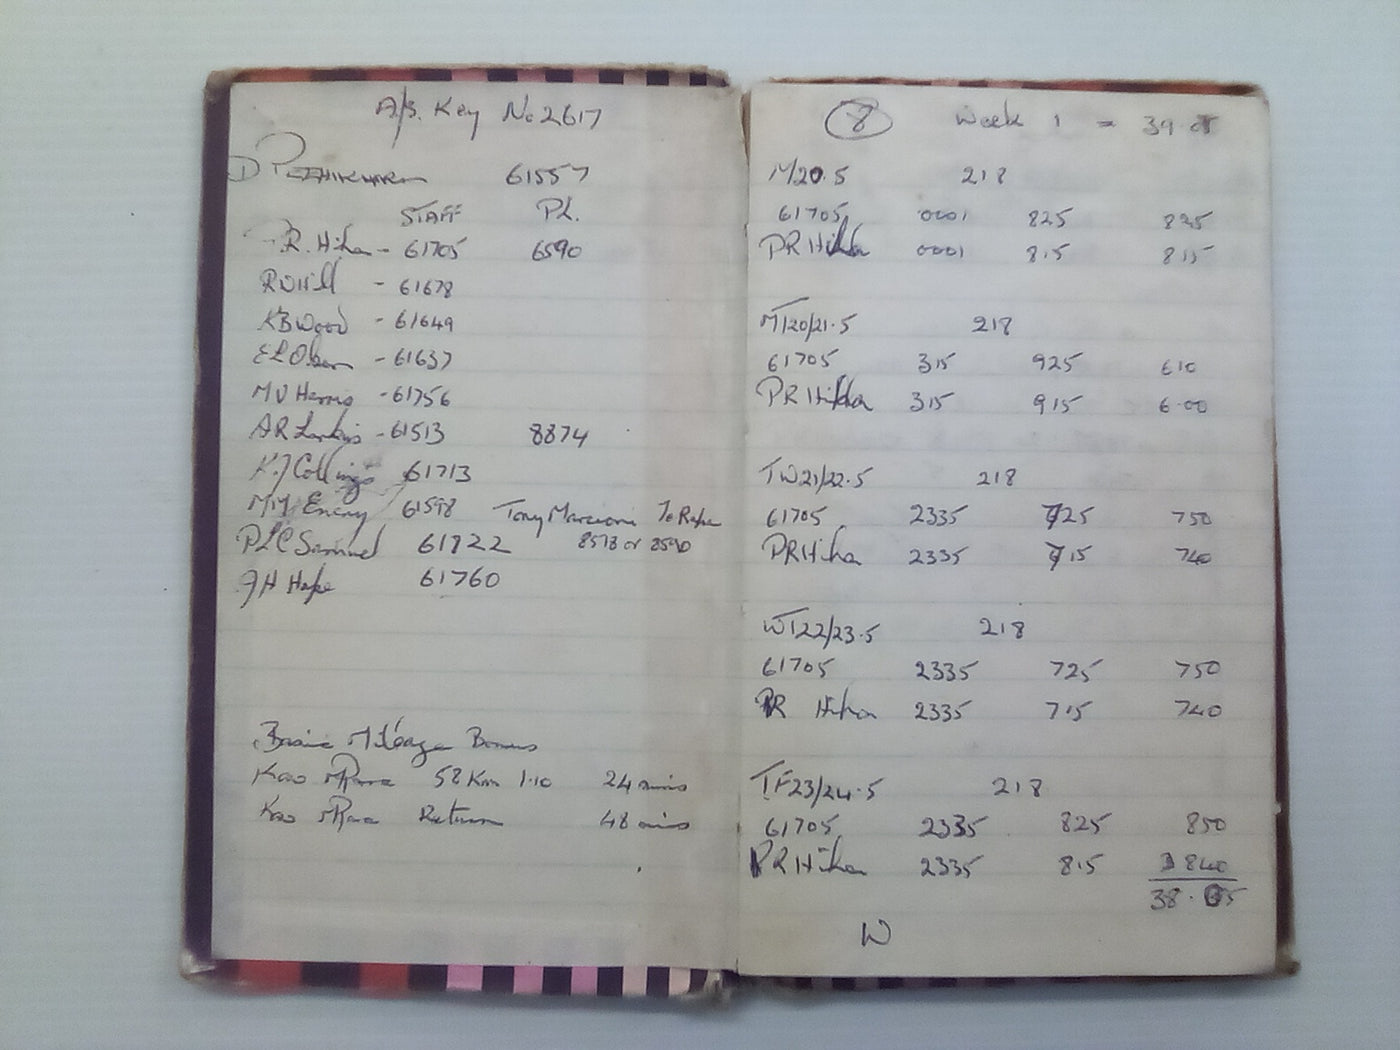 A/B. Key No 2617
D 61557
STAFF PL.
P.R. Hika - 61705 6590
R W Hill - 61678
KB Wood - 61649
E L Olsen - 61637
M V Harris - 61756
A R Larkins - 61513 8874
K J Collings 61713
M M Eneny 61598 Tony Marsioni Te Rapa
P L C Samuel 61722 8578 or 8590
J H Hape 61760
Basic Mileage Bonus
Kao 58 Km 1.10 24 mins
Kao Return 48 mins
8 Week 1 = 39.05
M20.5 218
61705 0001 825 825
PR Hika 0001 8.15 815
MT20/21.5 218
61705 315 925 610
PR Hika 315 915 6.00
TW21/22.5 218
61705 2335 725 750
PR Hika 2335 715 740
WT22/23.5 218
61705 2335 725 750
PR Hika 2335 7.15 740
TF23/24.5 218
61705 2335 825 850
PR Hika 2335 8.15 840
38.05
W